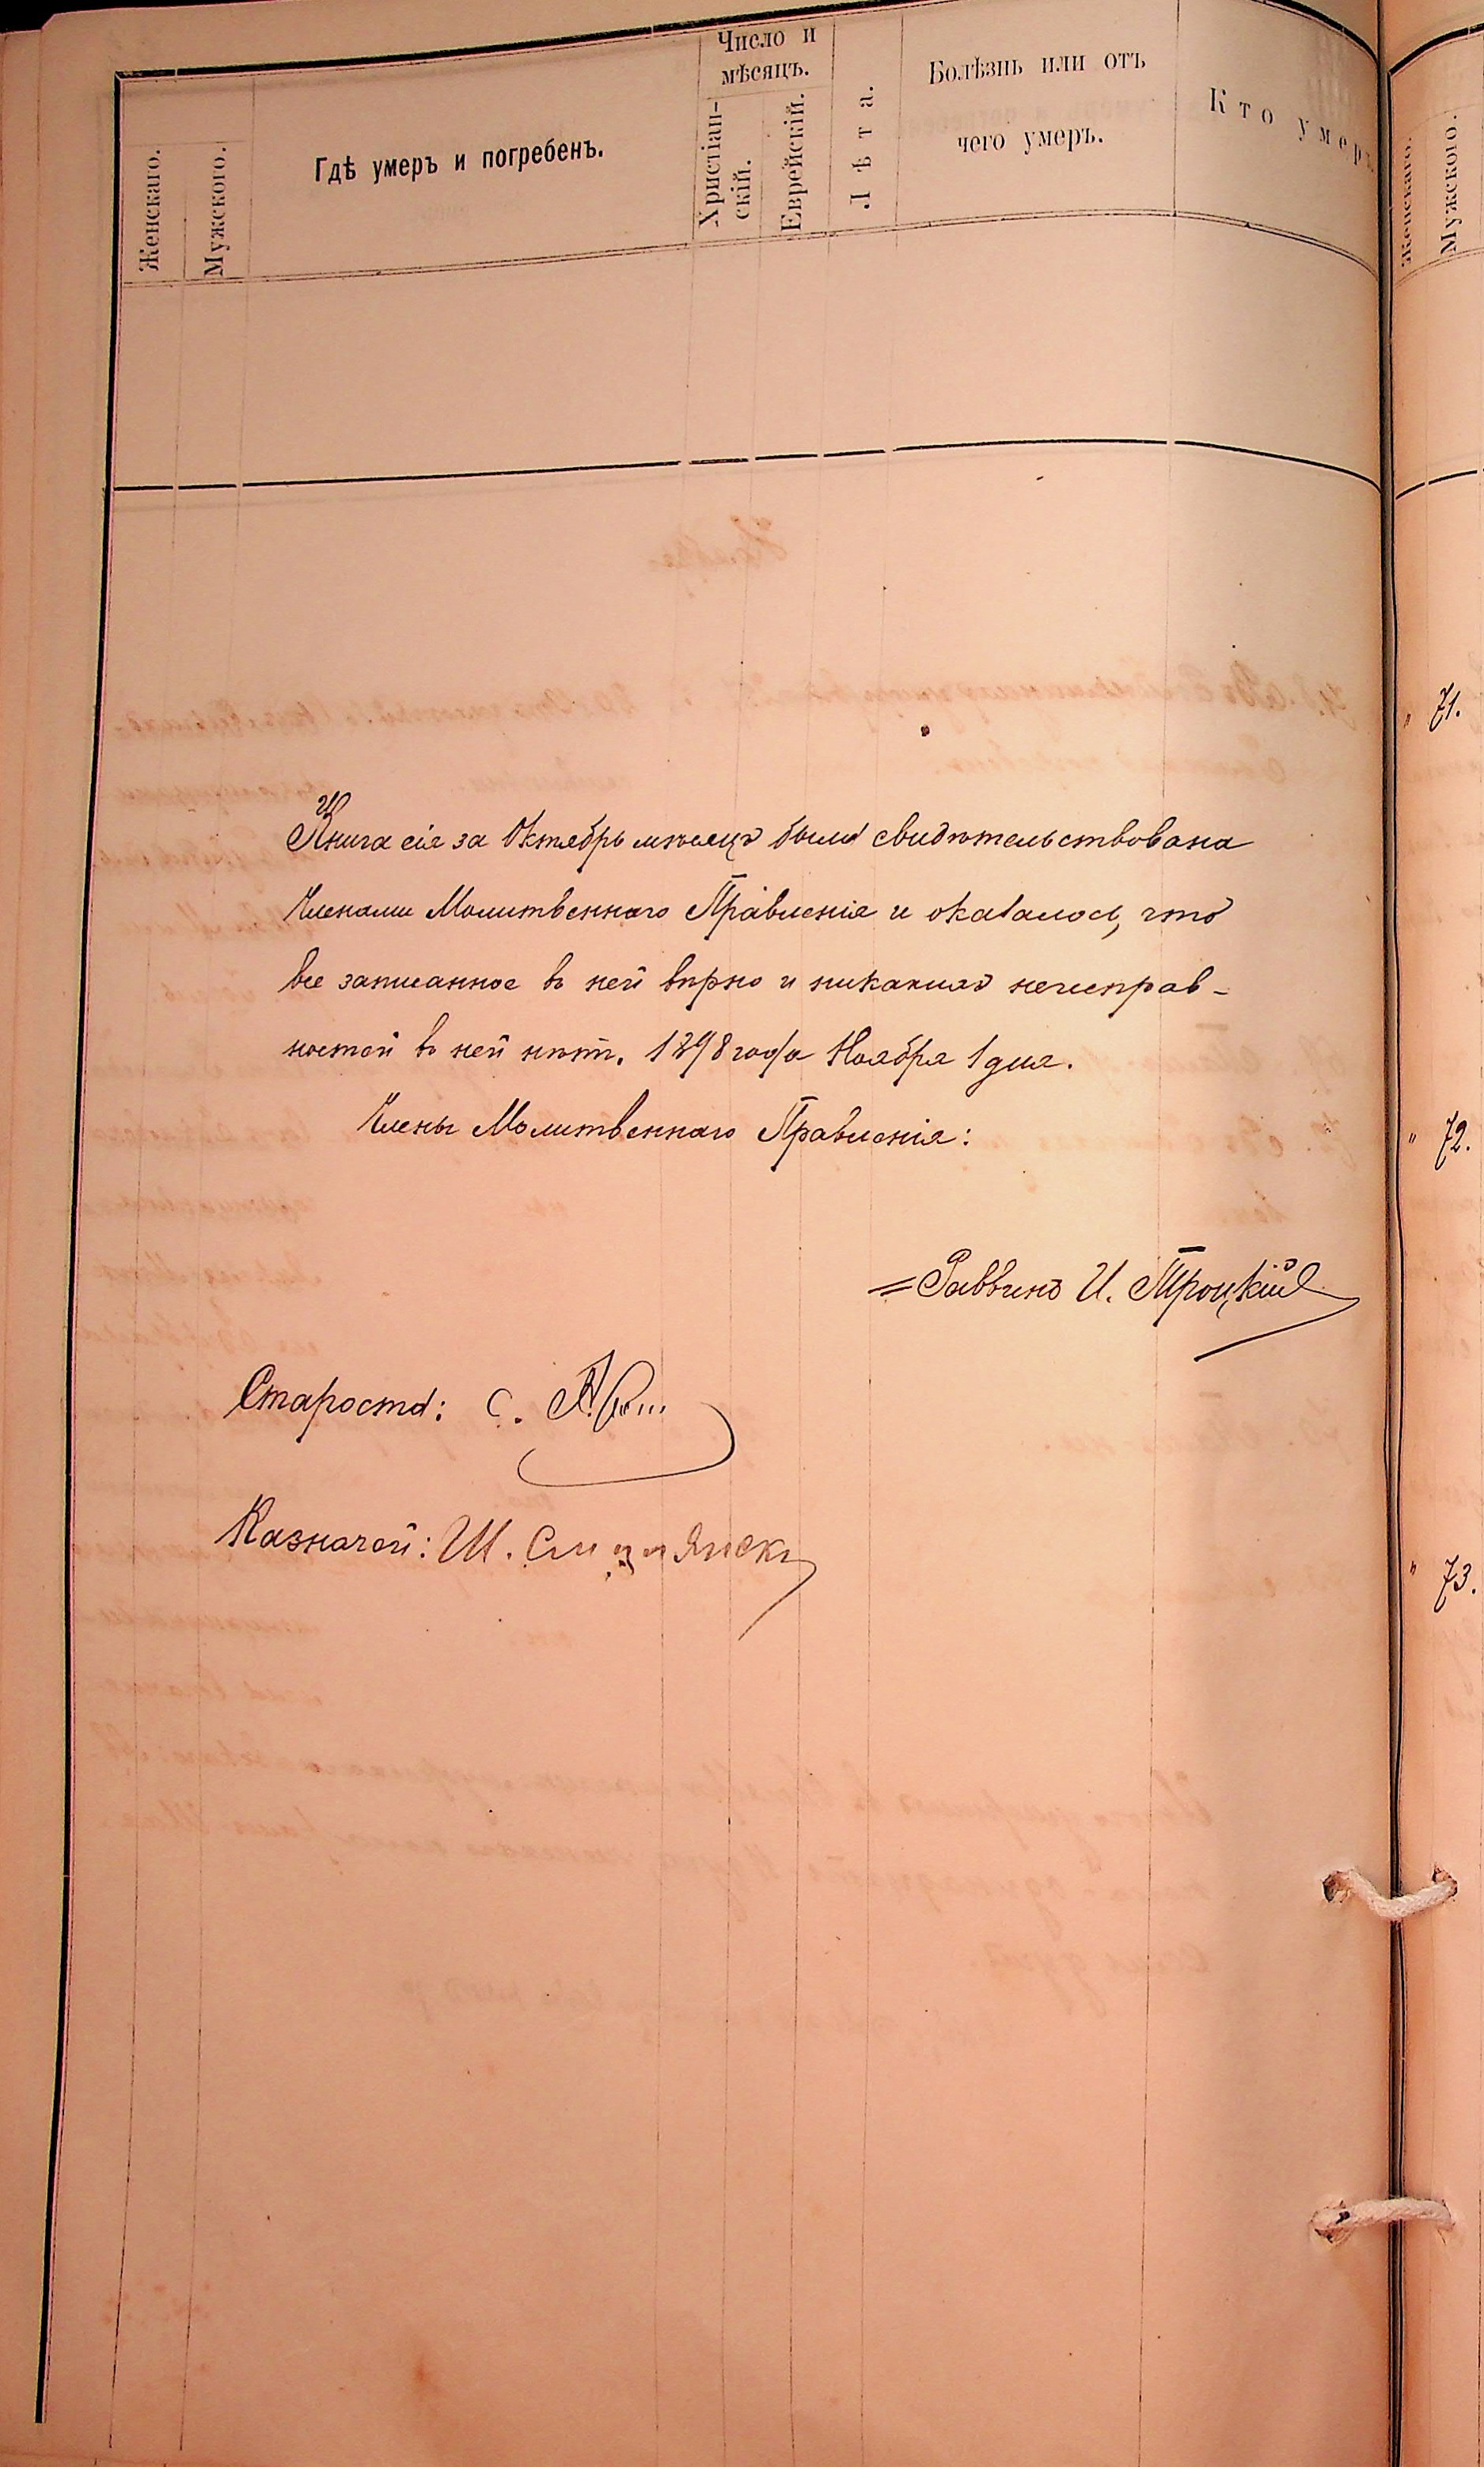 Женскаго.
Мужского.
Гдѣ умеръ и погребенъ.
Число и
мѣсяцъ.
Христіан-
скій.
Еврейскій.
Лѣта.
Болѣзнь или отъ
чего умеръ.
Кто умеръ
Женскаго.
Мужского.
Книга сія за Октябрь мѣсяцъ была свидѣтельствована
Членами Молитвеннаго Правленія и оказалось, что
все записанное въ ней вѣрно и никакихъ неисправ-
ностей въ ней нѣтъ. 1898 года Ноября 1 дня.
Члены Молитвеннаго Правленія:
= Раввинъ И. Троцкій
Староста: С.
Казначей: Ш.
" 71.
" 72.
" 73.